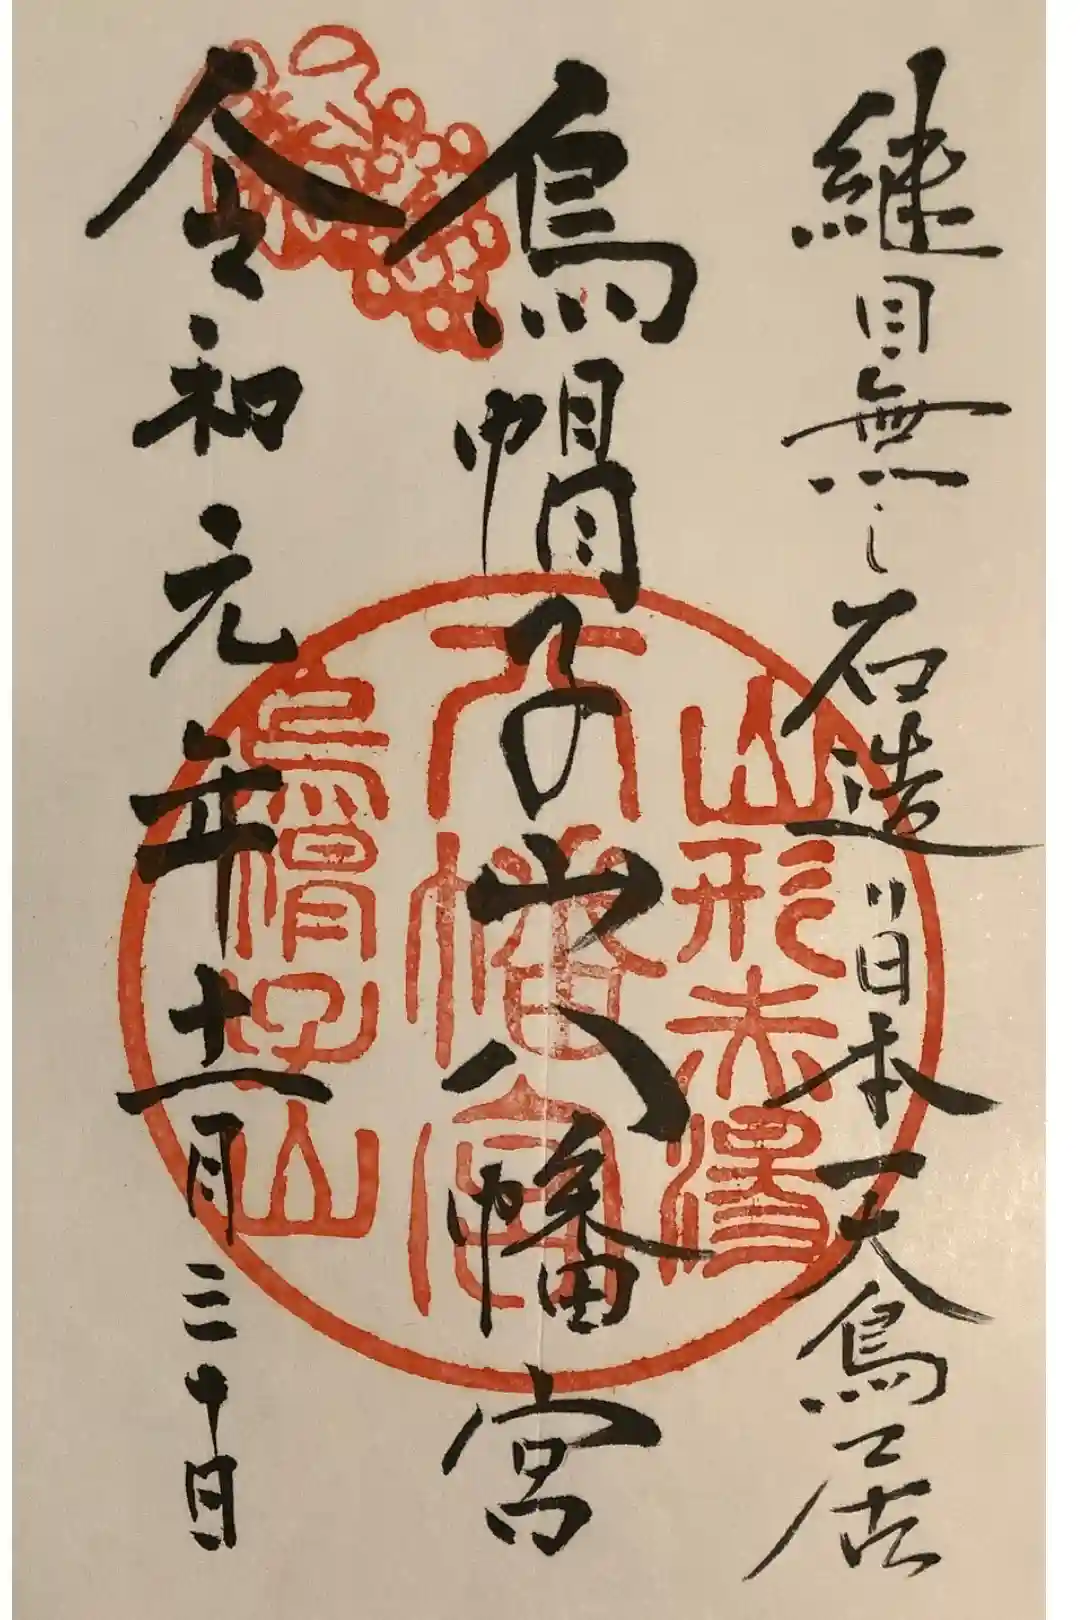 継目無し石造り日本一大鳥居
烏帽子山八幡宮
令和元年十一月三十日
山形赤湯
八幡宮
烏帽子山